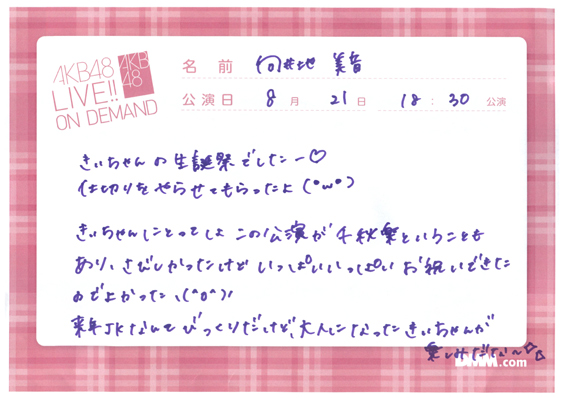 AKB48
LIVE!!
ON DEMAND
AKB
48
名前 向井地 美音
公演日 8月 21日 18:30 公演
きぃちゃんの生誕祭でしたー♡
仕切りをやらせてもらったよ(・ω・)
きぃちゃんにとってしょこの公演が千秋楽ということも
あり、さびしかったけど いっぱいいっぱい お祝いできた
のでよかった、(^o^)
来年JKなんてびっくりだけど、大人になったきぃちゃんが
楽しみだな〜☆☆
DMM.com